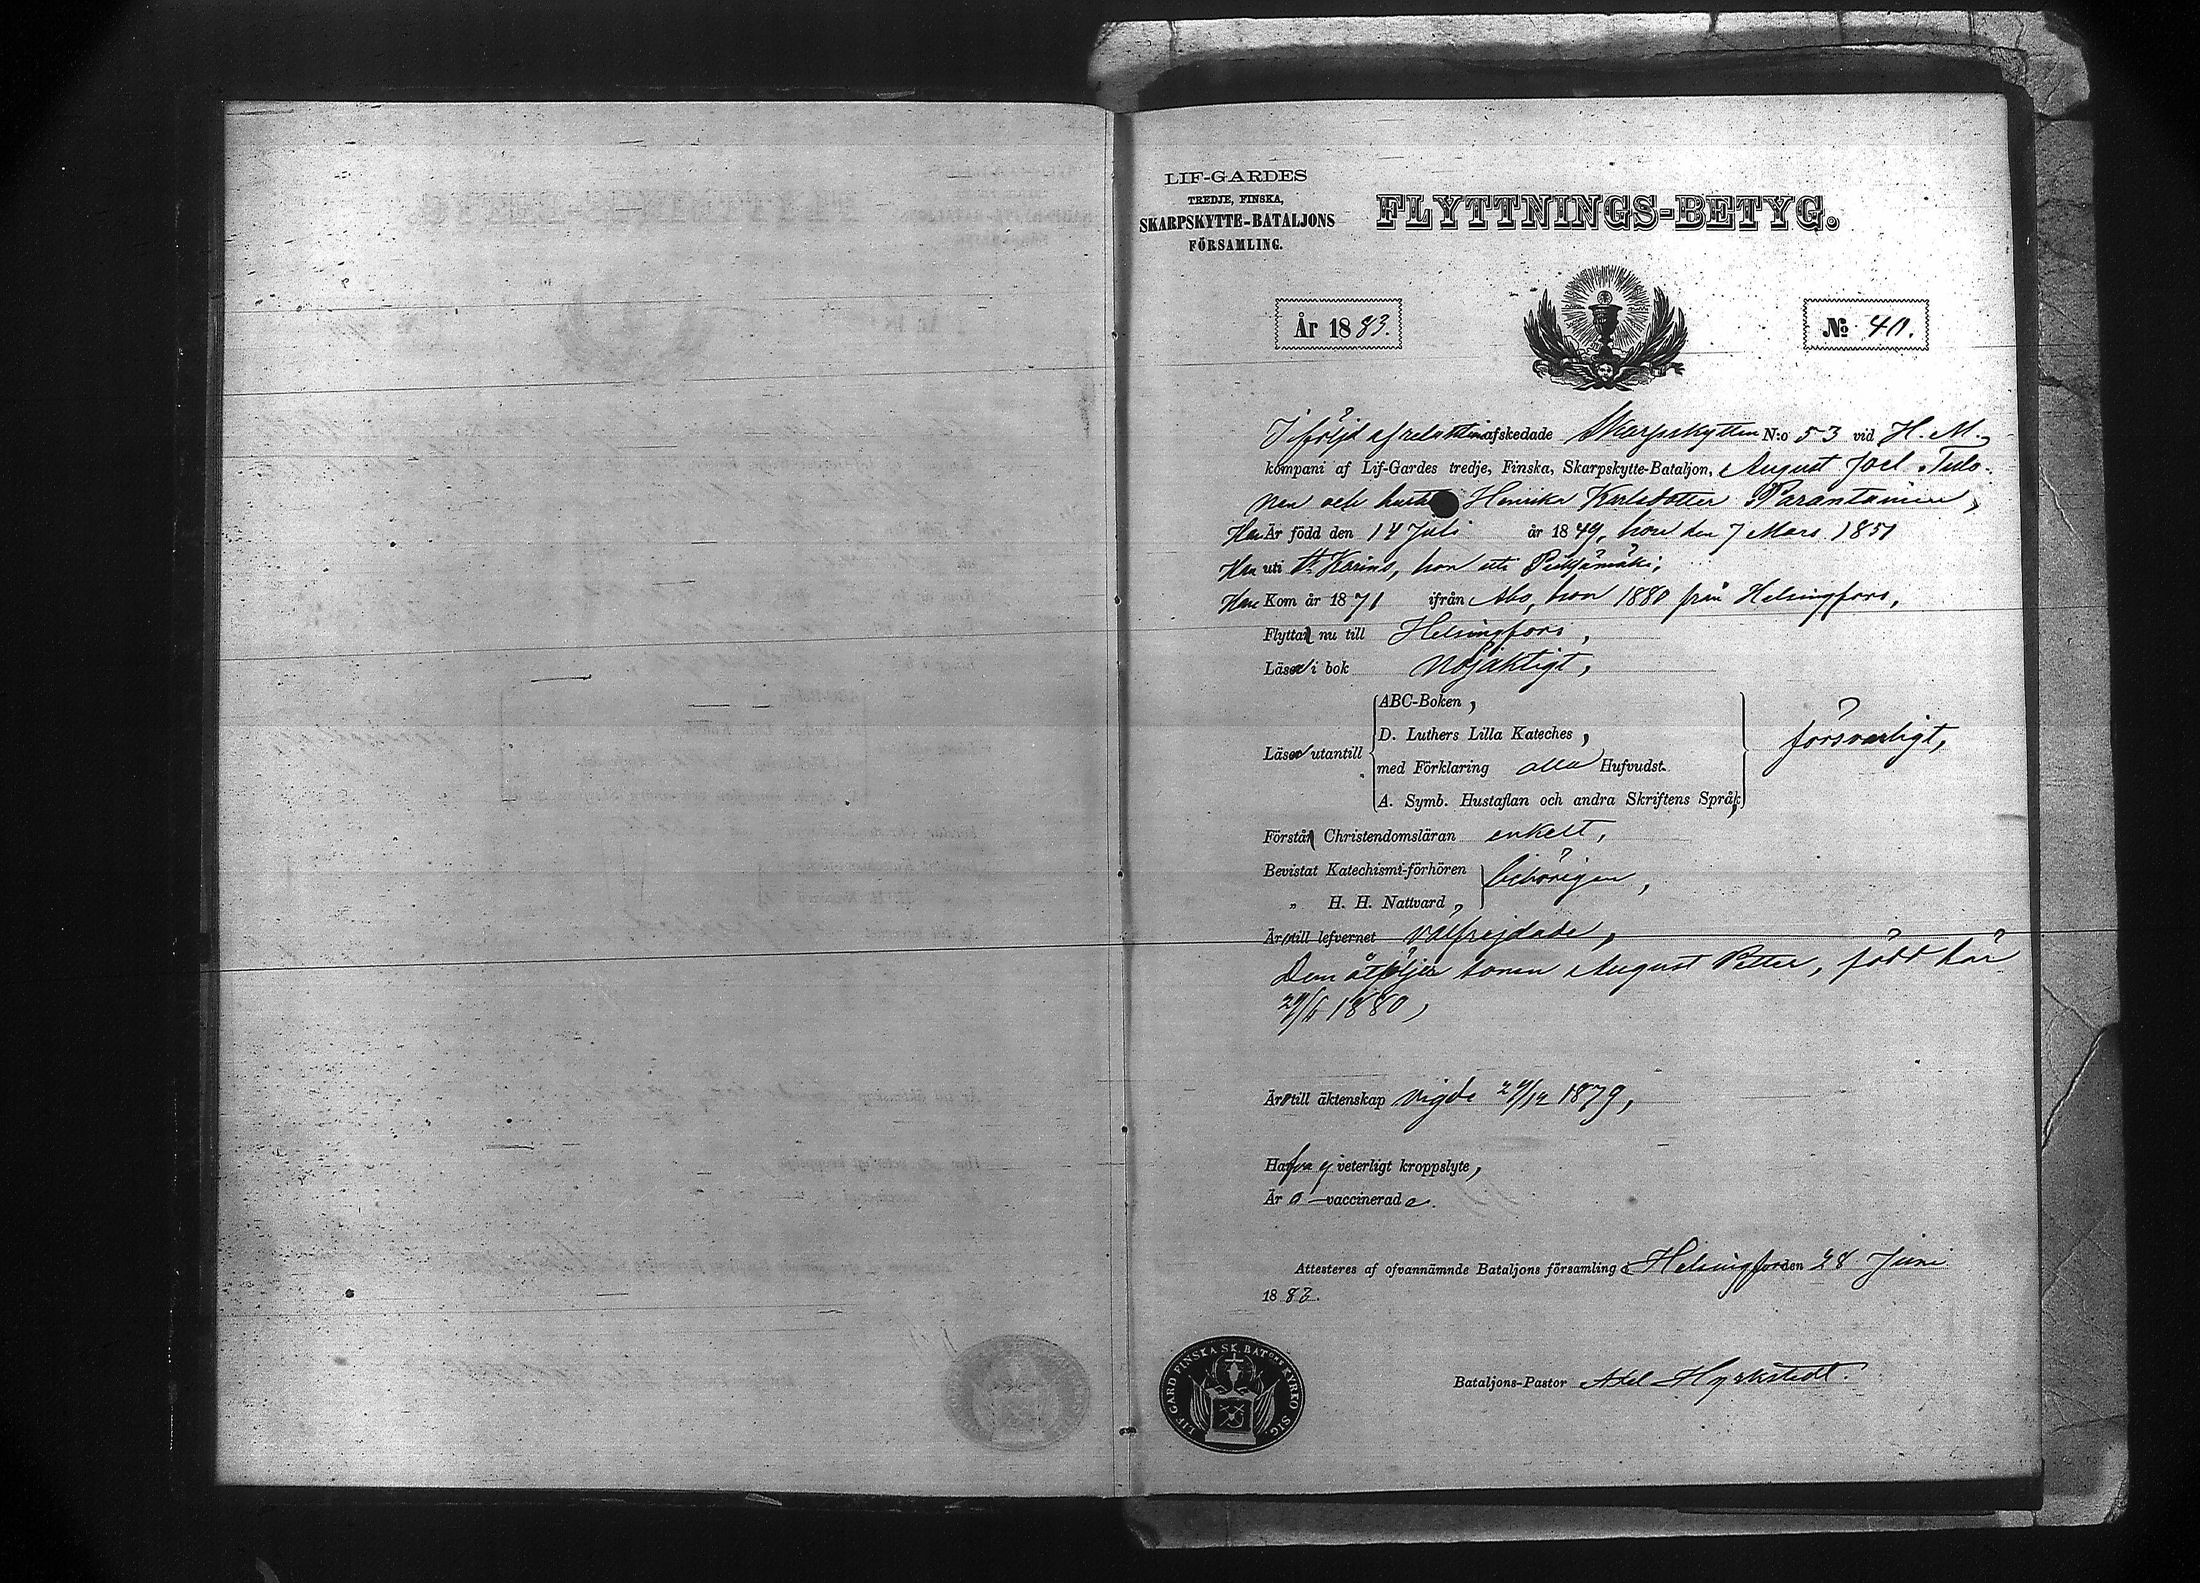 LIF-GARDES
TREDJE, FINSKA,
SKARPSKYTTE-BATALJONS
FÖRSAMLING.
FLYTTNINGS-BETYG.
År 1883.
No 40.
I följd af reduktion afskedade Skarpskytten N:o 53 vid H. M.
kompani af Lif-Gardes tredje, Finska, Skarpskytte-Bataljon, August Joel Tulo-
nen och hustru Henrika Karlsdotter Parantainen,
Han Är född den 14 Juli år 1849, hon den 7 Mars 1851
Han uti St Karins, hon uti Pieksämäki,
Han Kom år 1871 ifrån Åbo, hon 1880 från Helsingfors,
Flytta nu till Helsingfors,
Läser i bok nöjaktigt,
Läser utantill
ABC-Boken,
D. Luthers Lilla Kateches,
med Förklaring alla Hufvudst.
A. Symb. Hustaflan och andra Skriftens Språk,
försvarligt,
Förstå Christendomsläran enkelt,
Bevistat Katechismi-förhören
„ H. H. Nattvard,
behörigen,
Äro till lefvernet välfrejdade,
Dem åtföljer sonen August Petter, född här
1880,
Äro till äktenskap vigde 29/12 1879,
Hafva ej veterligt kroppslyte,
Äro vaccinerade.
Attesteres af ofvannämnde Bataljons församling i Helsingfors den 28 Juni
1883.
Bataljons-Pastor Axel Hyrkstedt.
LIF. GARD. FINSKA SK. BATONS KYRKO SIG.